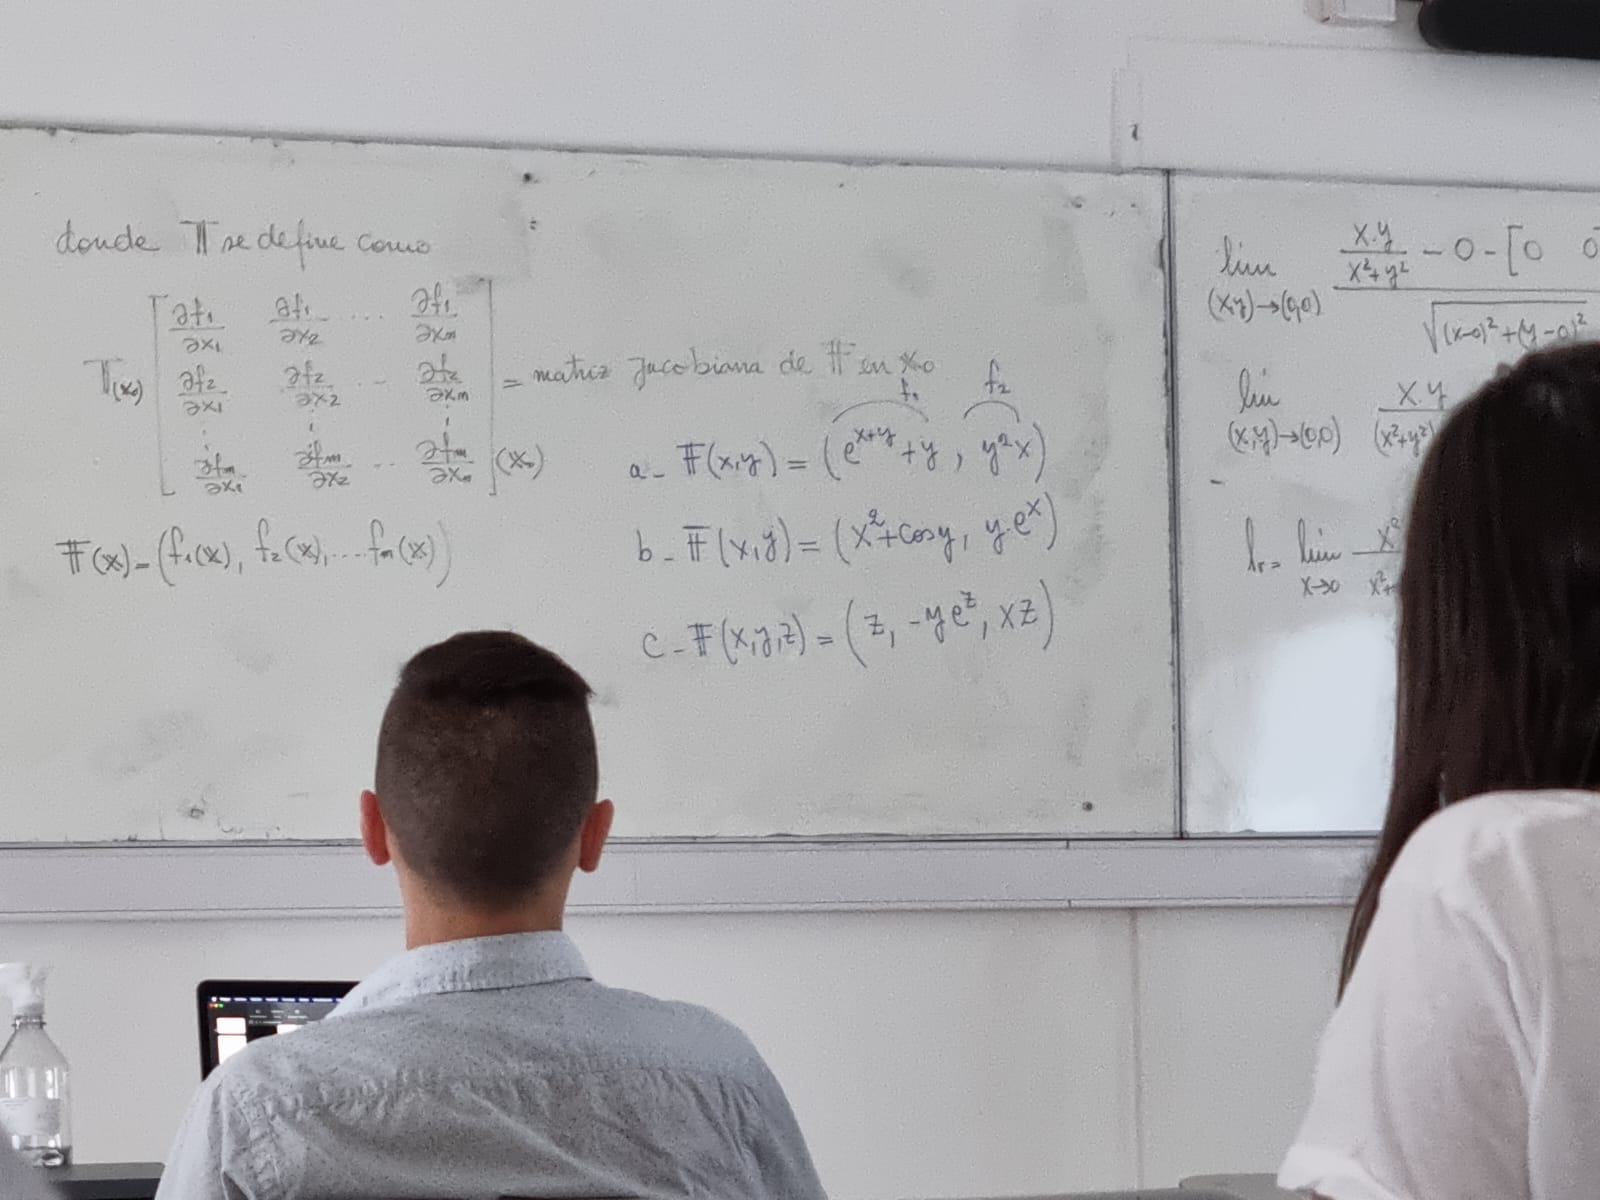 donde 𝕋 se define como
𝕋(x₀) [ ∂f₁/∂x₁ ∂f₁/∂x₂ ... ∂f₁/∂xₙ
∂f₂/∂x₁ ∂f₂/∂x₂ ... ∂f₂/∂xₙ
⋮ ⋮ ⋮
∂fₘ/∂x₁ ∂fₘ/∂x₂ ... ∂fₘ/∂xₙ ] (x₀) = matriz Jacobiana de 𝔽 en x₀
𝔽(x) = (f₁(x), f₂(x), ... fₘ(x))
f₁ f₂
a - 𝔽(x,y) = (e^(x+y) + y, y²x)
b - 𝔽(x,y) = (x² + cos y, y·e^x)
c - 𝔽(x,y,z) = (z, -ye^z, xz)
lim (x,y)→(0,0) x·y/(x²+y²) - 0 - [0 0
√((x-0)²+(y-0)²
lim (x,y)→(0,0) x·y/(x²+y²)
lr = lim x→0 x²/x²+